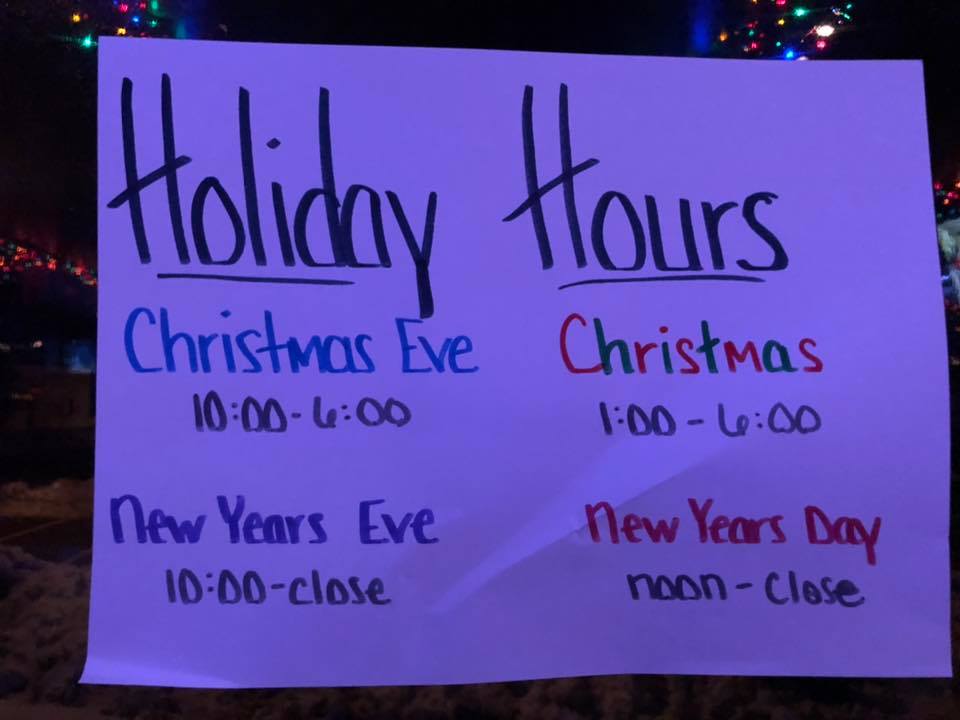 Holiday Hours
Christmas Eve
10:00-6:00
Christmas
1:00-6:00
New Years Eve
10:00-close
New Years Day
noon-Close